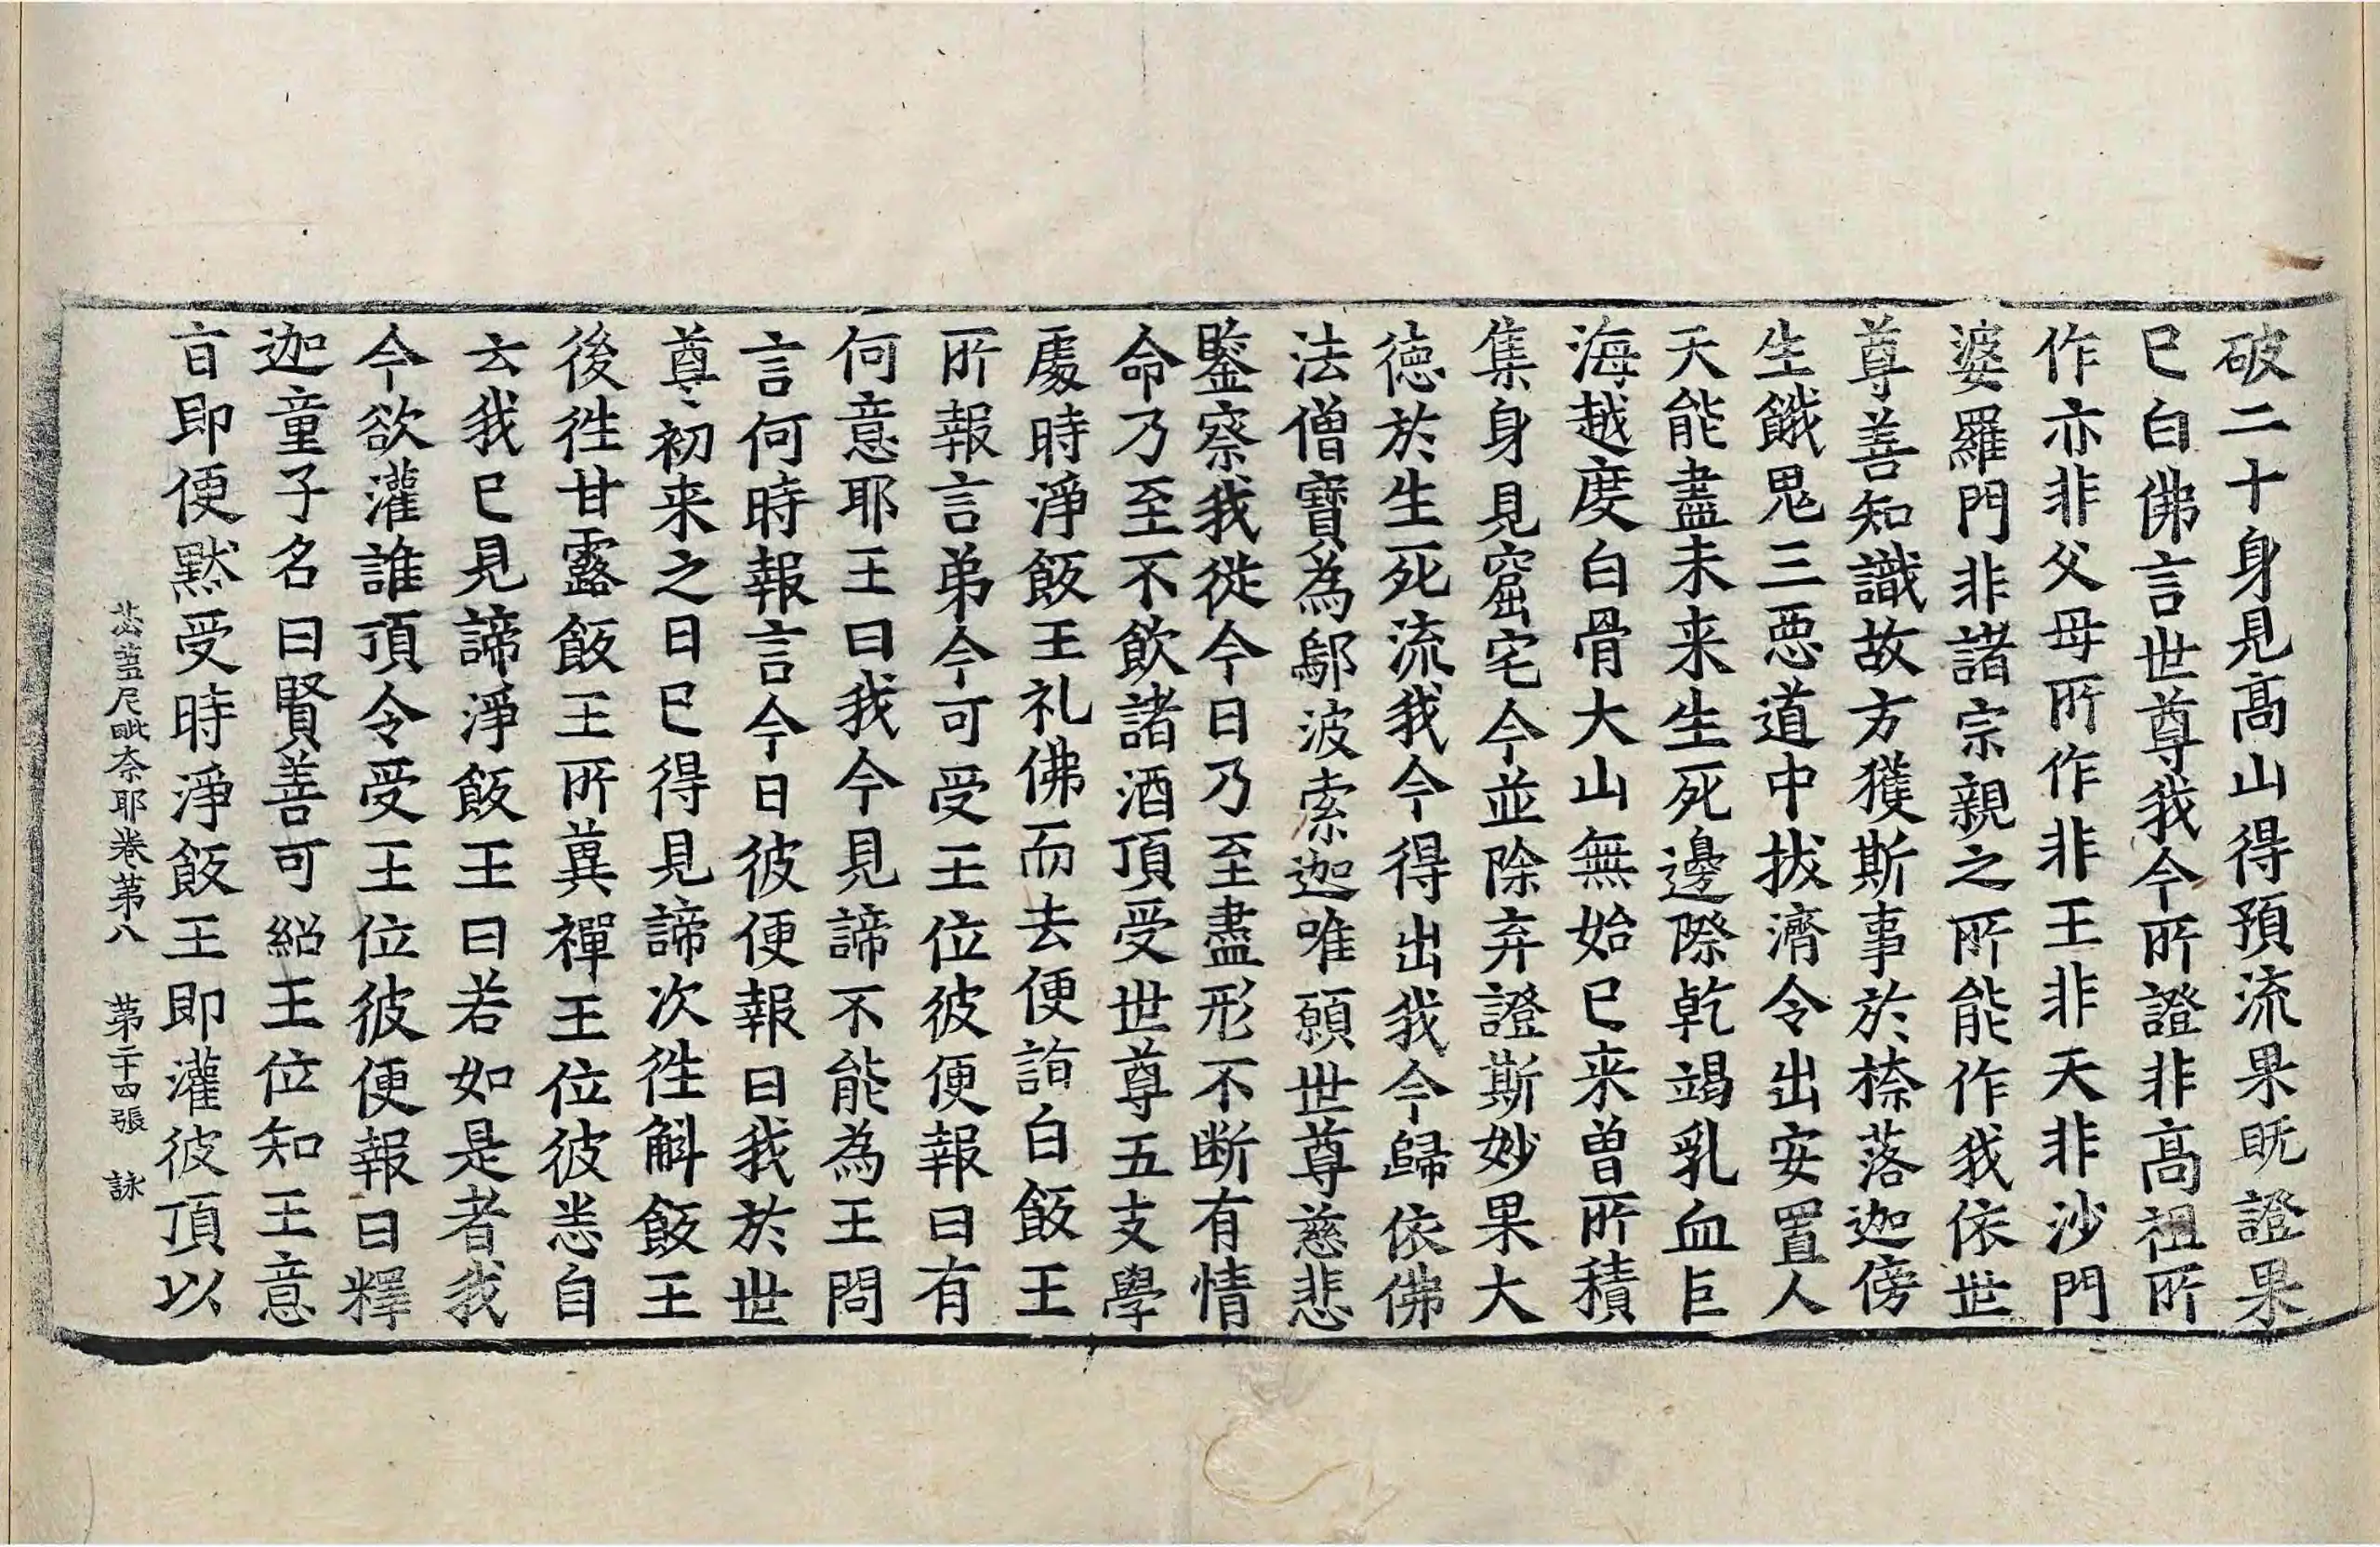 破二十身見高山得預流果旣證果
巳白佛言世尊我今所證非高祖所
作亦非父母所作非王非天非沙門
婆羅門非諸宗親之所能作我依世
尊善知識故方獲斯事於㮈落迦傍
生餓鬼三惡道中拔濟令出安置人
天能盡未来生死邊際乾竭乳血巨
海越度白骨大山無始巳来曾所積
集身見窟宅今並除弃證斯妙果大
徳於生死流我今得出我今歸依佛
法僧寶為鄔波索迦唯願世尊慈悲
鑒察我從今日乃至盡形不断有情
命乃至不飲諸酒頂受世尊五支學
處時淨飯王礼佛而去便詣白飯王
所報言弟今可受王位彼便報曰有
何意耶王曰我今見諦不能為王問
言何時報言今日彼便報曰我於世
尊初来之日巳得見諦次徃斛飯王
後徃甘露飯王所兾禪王位彼恙自
云我巳見諦淨飯王曰若如是者我
今欲灌誰頂令受王位彼便報曰釋
迦童子名曰賢善可紹王位知王意
㫖即便黙受時淨飯王即灌彼頂以
苾蒭尼毗柰耶卷第八 第二十四張 詠